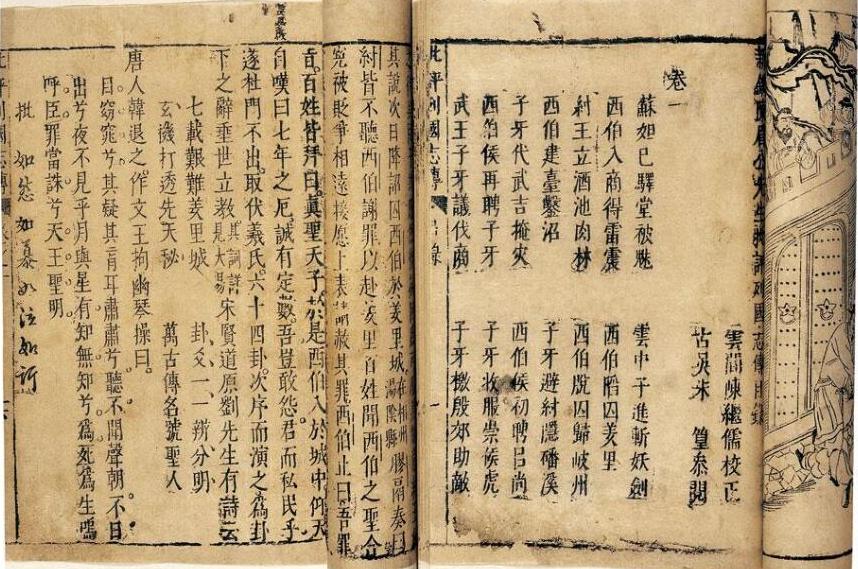 雲間陳繼儒校正
古吳朱篁參閱
卷一
蘇妲己驛堂被魅 雲中子進斬妖劍
西伯入商得雷震 西伯陷囚羑里
紂王立酒池肉林 西伯脫囚歸岐州
西伯建臺鑿沼 子牙避紂隱磻溪
子牙代武吉掩災 西伯侯初聘呂尚
西伯侯再聘子牙 子牙收服崇侯虎
武王子牙議伐商 子牙檄殷郊助敵
批評列國志傳 目錄 一
其說次日降詔囚西伯於羑里城在相州湯陰縣膠鬲奏
紂皆不聽西伯謝罪以赴羑里百姓聞西伯之聖含
冤被貶爭相遠接愿上表請赦其罪西伯止曰吾罪
言百姓皆拜曰真聖天子於是西伯入於城中仰天
自嘆曰七年之厄誠有定數吾豈敢怨君而私民乎
遂杜門不出取伏羲氏六十四卦次序而演之為卦
下之辭垂世立教其詞詳見大易宋賢道原劉先生有詩云
七載艱難羑里城 卦爻一一辨分明
玄機打透先天秘 萬古傳名號聖人
唐人韓退之作文王拘幽琴操曰
目窈窕兮其疑其盲耳肅肅兮聽不聞聲朝不日
出兮夜不見乎月與星有知無知兮為死為生嗚
呼臣罪當誅兮天王聖明
批 如怨如慕如泣如訴
批評列國志傳